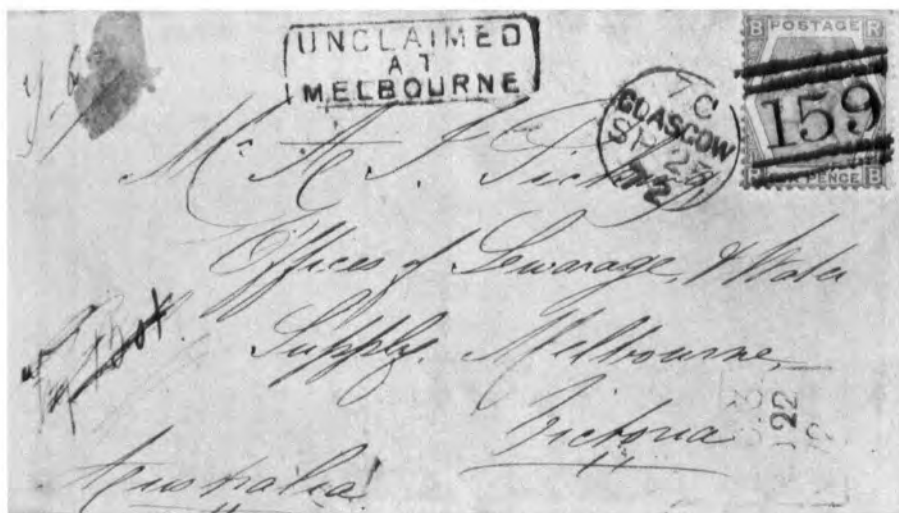 UNCLAIMED
AT
MELBOURNE
7 C
GLASGOW
SP 27
72
B POSTAGE R
159
R PENCE B
Offices of Sewarage, & Water
Supply. Melbourne
Victoria
22
Australia